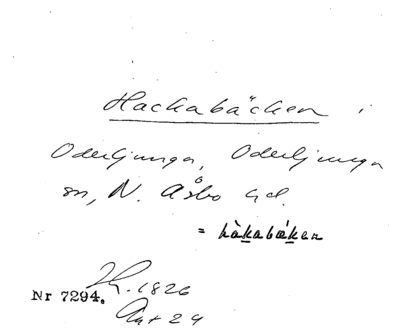 Hackabäcken i
Oderljunga, Oderljunga
sn, N. Åsbo hd.
= hàkabäken
Nr 7294. 1826
24